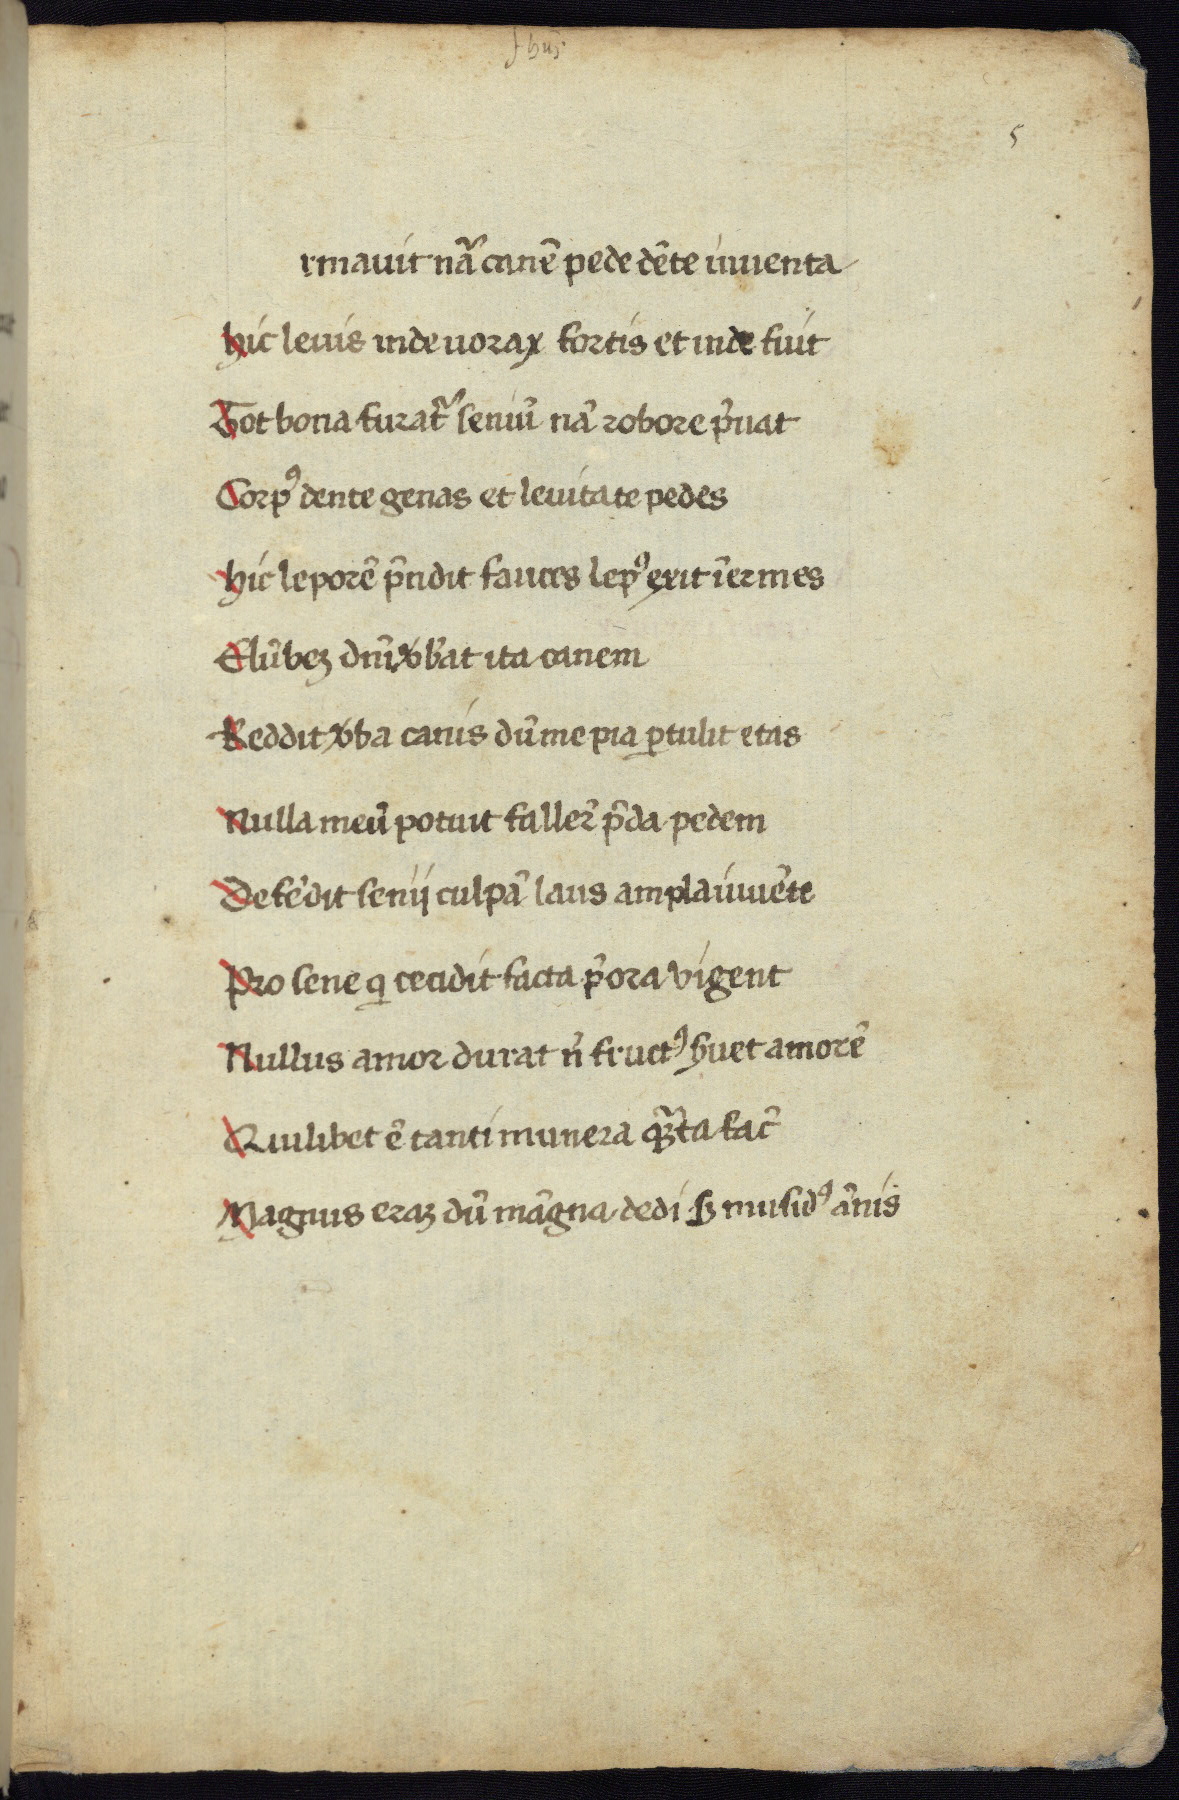 5
rmauit nã canẽ pede dẽte iuuenta
hic leuis inde uorax fortis et inde fuit
Tot bona furat᷑ seniũ nã robore p̃uat
Corpꝰ dente genas et leuitate pedes
hic leporẽ p̃ndit fauces lepꝰ exit ĩermes
Elũbeꝫ dñs v̾b̾at ita canem
Reddit v̾ba canis dũ me pia ꝑtulit etas
Nulla meũ potuit fallẽ p̃da pedem
Defẽdit senij culpã laus ampla iuuẽte
Pro sene q cecidit facta p̃ora vigent
Nullus amor durat ñ fructꝰ ẜuet amorẽ
Quilibet ẽ tanti munera q̃ta fac̃
Magnus eraꝫ dũ mãgna dedi sꝫ